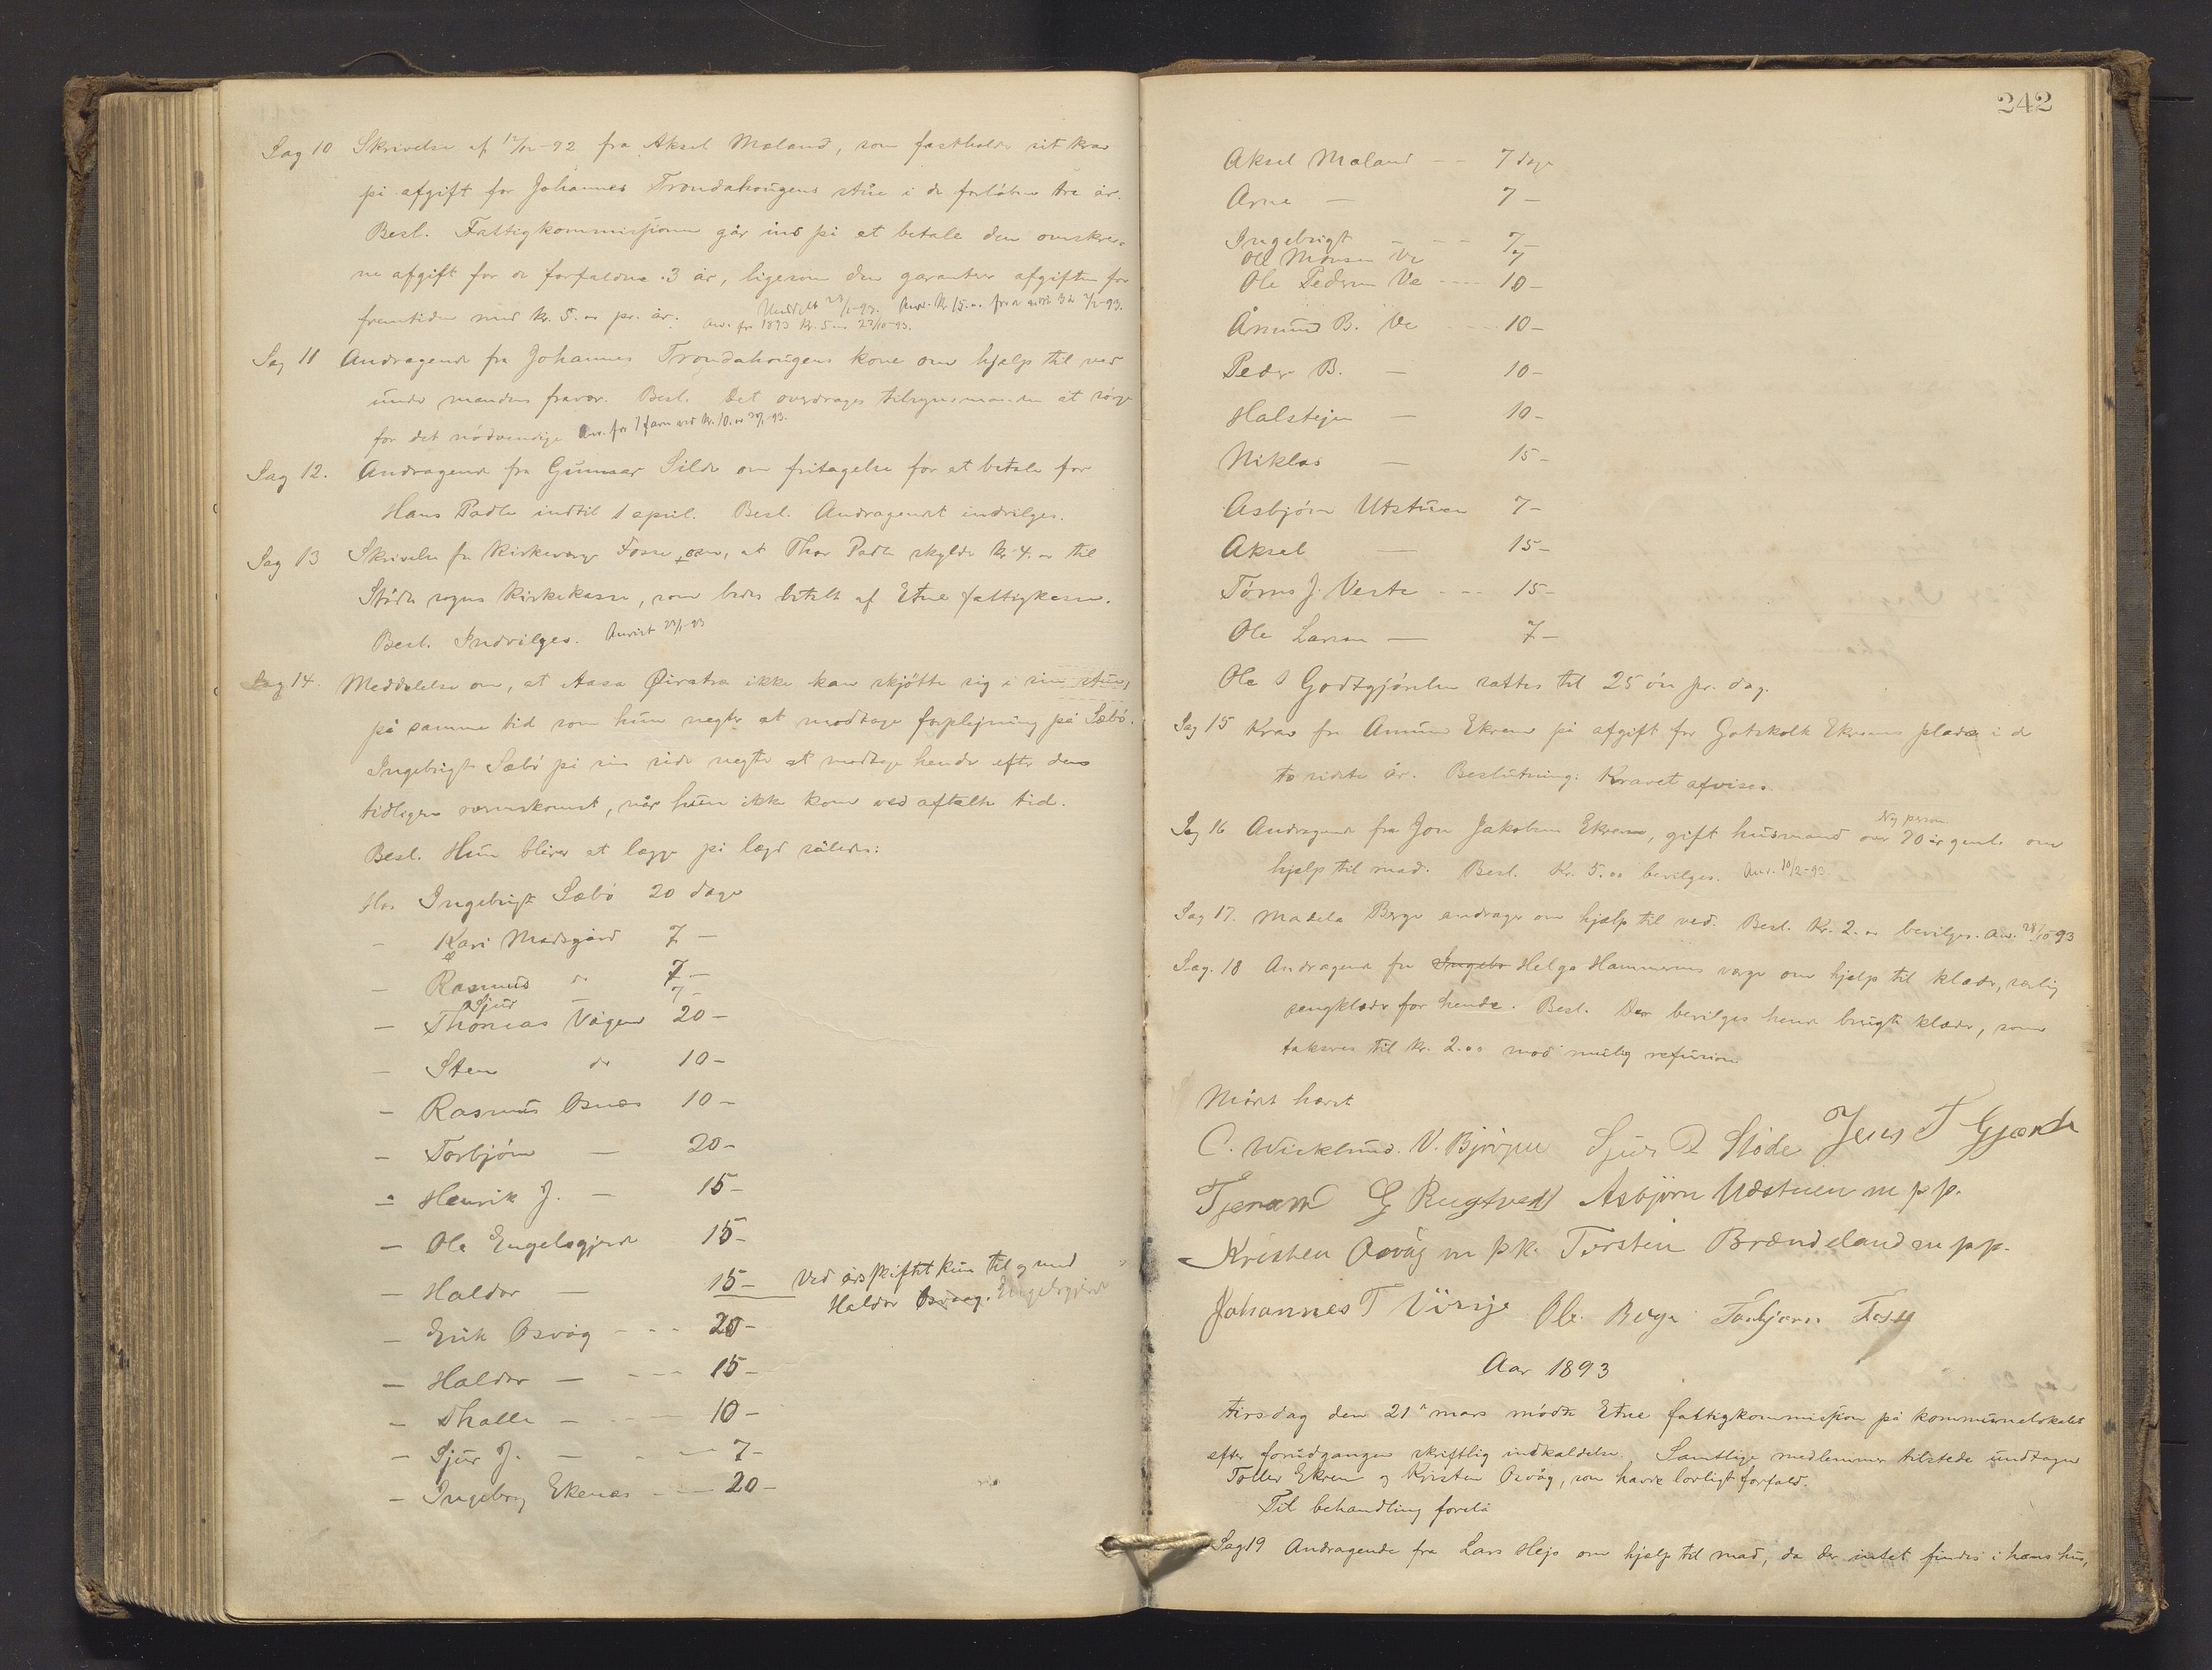 Sag 10 Skrivelse af 12/12-92 fra Aksel Mæland, som fastholder sit krav
på afgift for Johannes Trondahougens stue i de forløbne tre år.
Besl. Fattigkommissionen går ind på at betale den omskrev-
ne afgift for de forfaldne 3 år, ligesom den garanterer afgiften for
fremtiden med kr. 5.00 pr. år. Meddelt 23/1-93. Anv. kr 15.00 for 2/2-93.
Anv. for 1893 kr. 5.00 23/10-93.
Sag 11 Andragende fra Johannes Trondahougens kone om hjælp til ved
under mandens fravær. Besl. Det overdrages tilsynsmanden at sørge
for det nødvendige Anv. for 1 favn ved kr. 10.00 -93.
Sag 12. Andragende fra Gunnar Silde om fritagelse for at betale for
Hans Padle indtil 1 april. Besl. Andragendet indvilges.
Sag 13 Skrivelse fra Kirkeværge Fosse om, at Thor Padle skylder kr. 4.00 til
Støde sogns Kirkekasse, som bedes betalt af Etne fattigkasse.
Besl. Indvilges. Anvist 23/1-93
Sag 14. Meddelelse om, at Aasa Øirstra ikke kan skjøtte sig i sin stue,
på samme tid som hun negter at modtage forplejning på Sæbø.
Ingebrigt Sæbø på sin side negter at modtage hende efter den
tidligere overenskomst, når hun ikke kom ved aftalte tid.
Besl. Hun bliver at lægge på lægd således:
Hos Ingebrigt Sæbø 20 dage
- Kari Madsgård 7 -
- Rasmus do 7 -
Sjur - 7 -
- Thomas Vågen 20 -
- Sten do 10 -
- Rasmus Osnes 10 -
- Torbjørn - 20 -
- Henrik J. - 15 -
- Ole Engelsgjerde 15 -
- Haldor - 15 - Ved årsskiftet kun til og med
Haldor Osvaag. Engelsgjerde
- Erik Osvåg - - - 20 -
- Haldor - - - - 15 -
- Thalle - - - - 10 -
- Sjur J. - - - 7 -
- Ingebrig Ekenes - - - 20 -
242
Aksel Mæland - - 7 dage
Arne - 7 -
Ingebrigt - - - 7 -
Ole Monsen Ve 7
Ole Pedersen Ve - - - - 10 -
Åmund B. Ve - - - 10 -
Peder B. - 10 -
Halstejn - 10 -
Niklas - 15 -
Asbjørn Utstuen 7 -
Aksel - 15 -
Tørres J. Vestre - - - 15 -
Ole Larsen - 7 -
Ole S Godtgjørelsen sattes til 25 øre pr. dag.
Sag 15 Krav fra Amund Ekrene på afgift for Gotskalk Ekrenes plads i de
to sidste år. Beslutning: Kravet afvises.
Ny person.
Sag 16 Andragende fra Jon Jakobsen Ekrene, gift husmand over 70 år gamle om
hjælp til mad. Besl. Kr. 5.00 bevilges. Anv. 10/2-93.
Sag 17. Madela Berge andrager om hjælp til ved. Besl. Kr. 2.00 bevilges. Anv. 28/10 93
Sag. 18 Andragende fra Ingebr Helga Hammerens værge om hjælp til klæder, særlig
sengklæder for hende. Besl. Der bevilges hende brugte klæder, som
takseres til kr. 2.00 mod mulig refusion
Mødet hævet
C. Wicklund. V. Bjørgen Sjur P Støde Jens T Gjærde
Tjeram G Rugtvedt Asbjørn Udstuen m p p.
Kristen Osvåg m p k. Torsten Brændeland m p p.
Johannes T Ole Berge Torbjørn Fosse
Aar 1893
tirsdag den 21de mars mødte Etne fattigkommission på kommunelokalet
efter forudgangen skriftlig indkaldelse. Samtlige medlemmer tilstede undtagen
Tollev Ekren og Kristen Osvåg, som havde lovligt forfald.
Til behandling forelå
Sag 19 Andragende fra Lars Hejo om hjælp til mad, da der intet findes i hans hus,